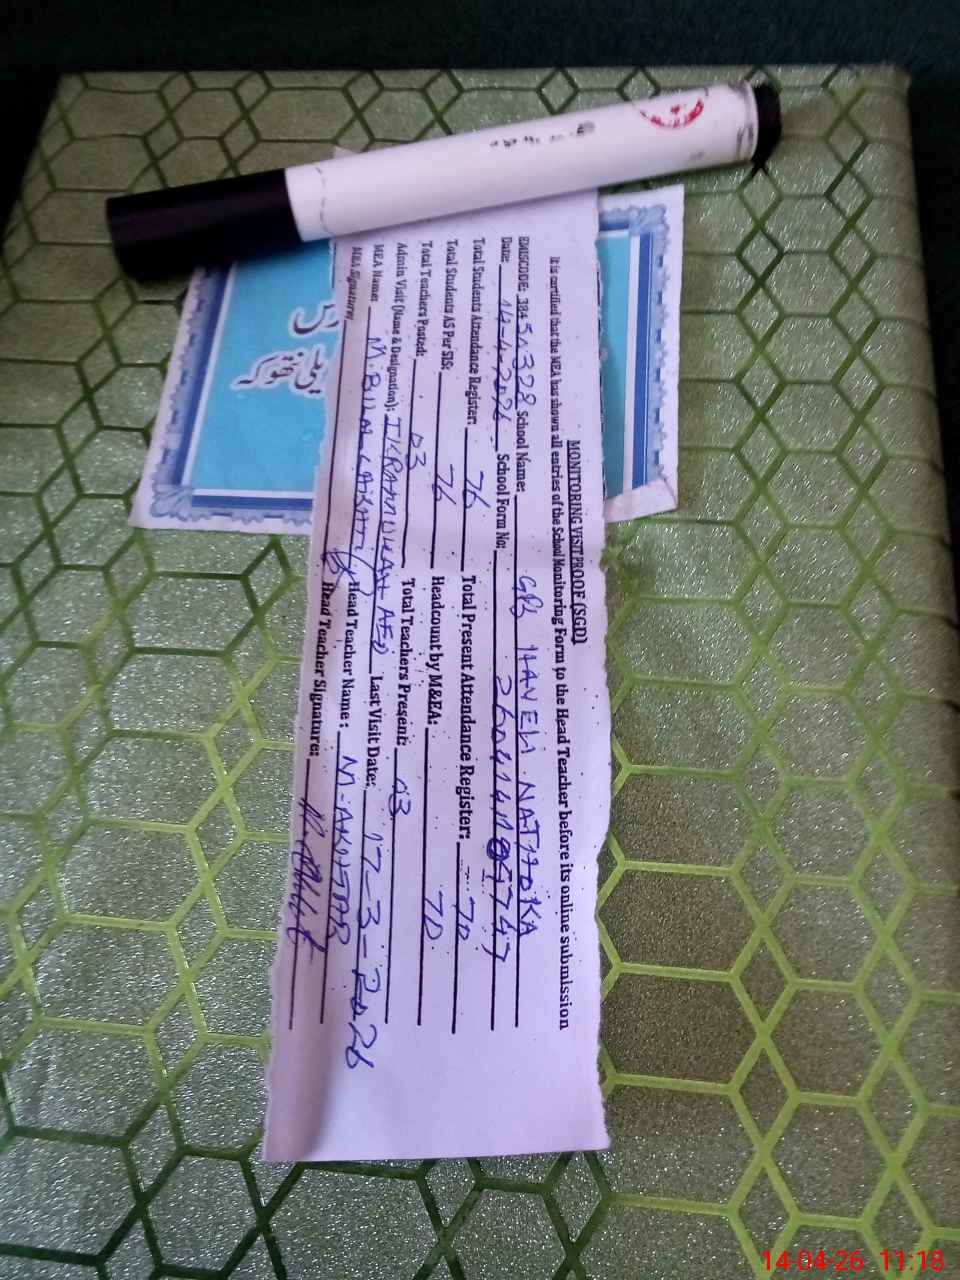 MONITORING VISIT PROOF (SGD)
It is certified that the MEA has shown all entries of the School Monitoring Form to the Head Teacher before its online submission
EMISCODE: 38450328 School Name: GPS HAVELI NATHOKA
Date: 14-4-2026 School Form No:
Total Students Attendance Register: 76 Total Present Attendance Register: 70
Total Students AS Per SIS: 76 Headcount by M&EA: 70
Total Teachers Posted: 03 Total Teachers Present: 03
Admin Visit (Name & Designation): IKRAMULLAH AEO Last Visit Date: 17-3-2026
MEA Name: M. BILAL Head Teacher Name: M-AKHTAR
MEA Signature: Head Teacher Signature:
یلی نتھوکہ
14-04-26 11:18